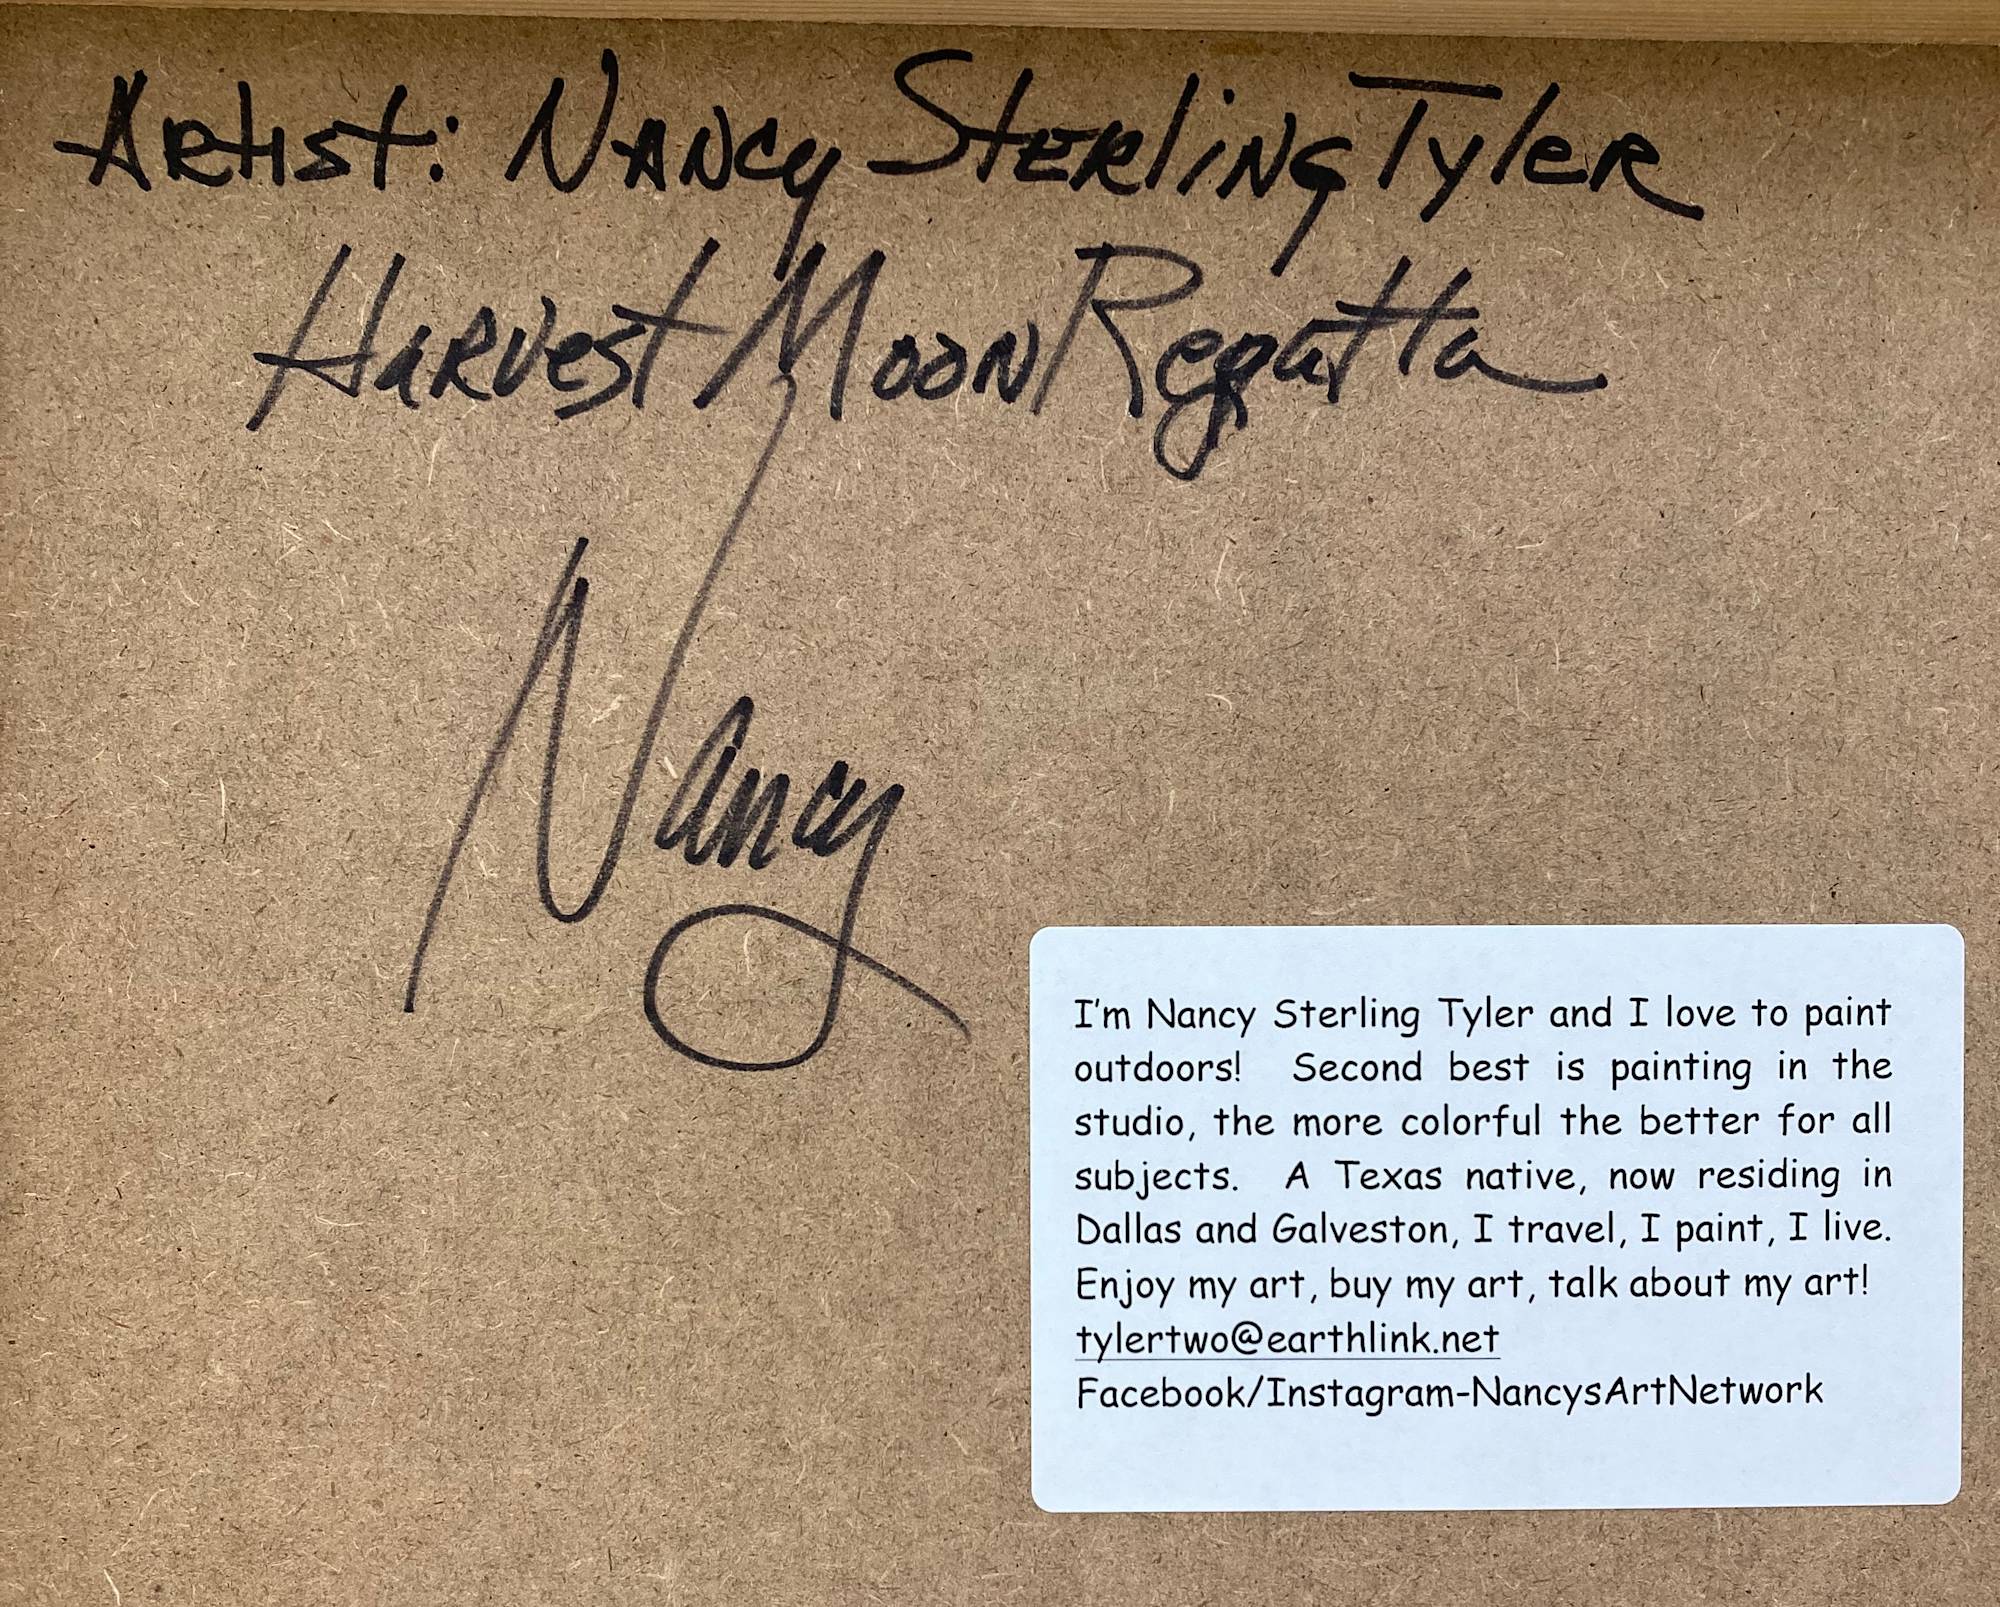 Artist: Nancy Sterling Tyler
Harvest Moon Regatta
Nancy
I'm Nancy Sterling Tyler and I love to paint
outdoors! Second best is painting in the
studio, the more colorful the better for all
subjects. A Texas native, now residing in
Dallas and Galveston, I travel, I paint, I live.
Enjoy my art, buy my art, talk about my art!
tylertwo@earthlink.net
Facebook/Instagram-NancysArtNetwork